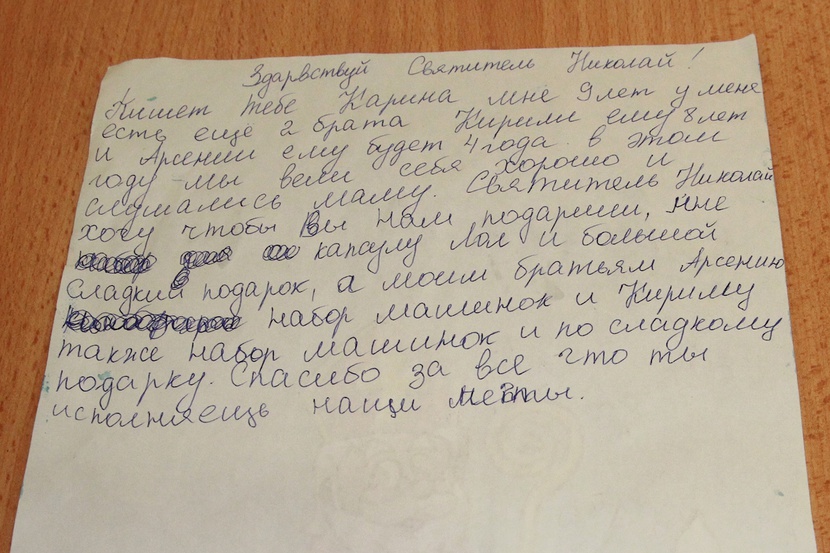 Здарвствуй Святитель Николай!
Пишет тебе Карина мне 9 лет у меня
есть ещё 2 брата Кирилл ему 8 лет
и Арсений ему будет 4 года в этом
году мы вели себя хорошо и
слушались маму. Святитель Николай
хочу чтобы Вы нам подарили, мне
капсулу Лол и большой
сладкий подарок, а моим братьям Арсению
набор машинок и Кирилу
также набор машинок и по сладкому
подарку. Спасибо за все что ты
исполняещь наши мечты.